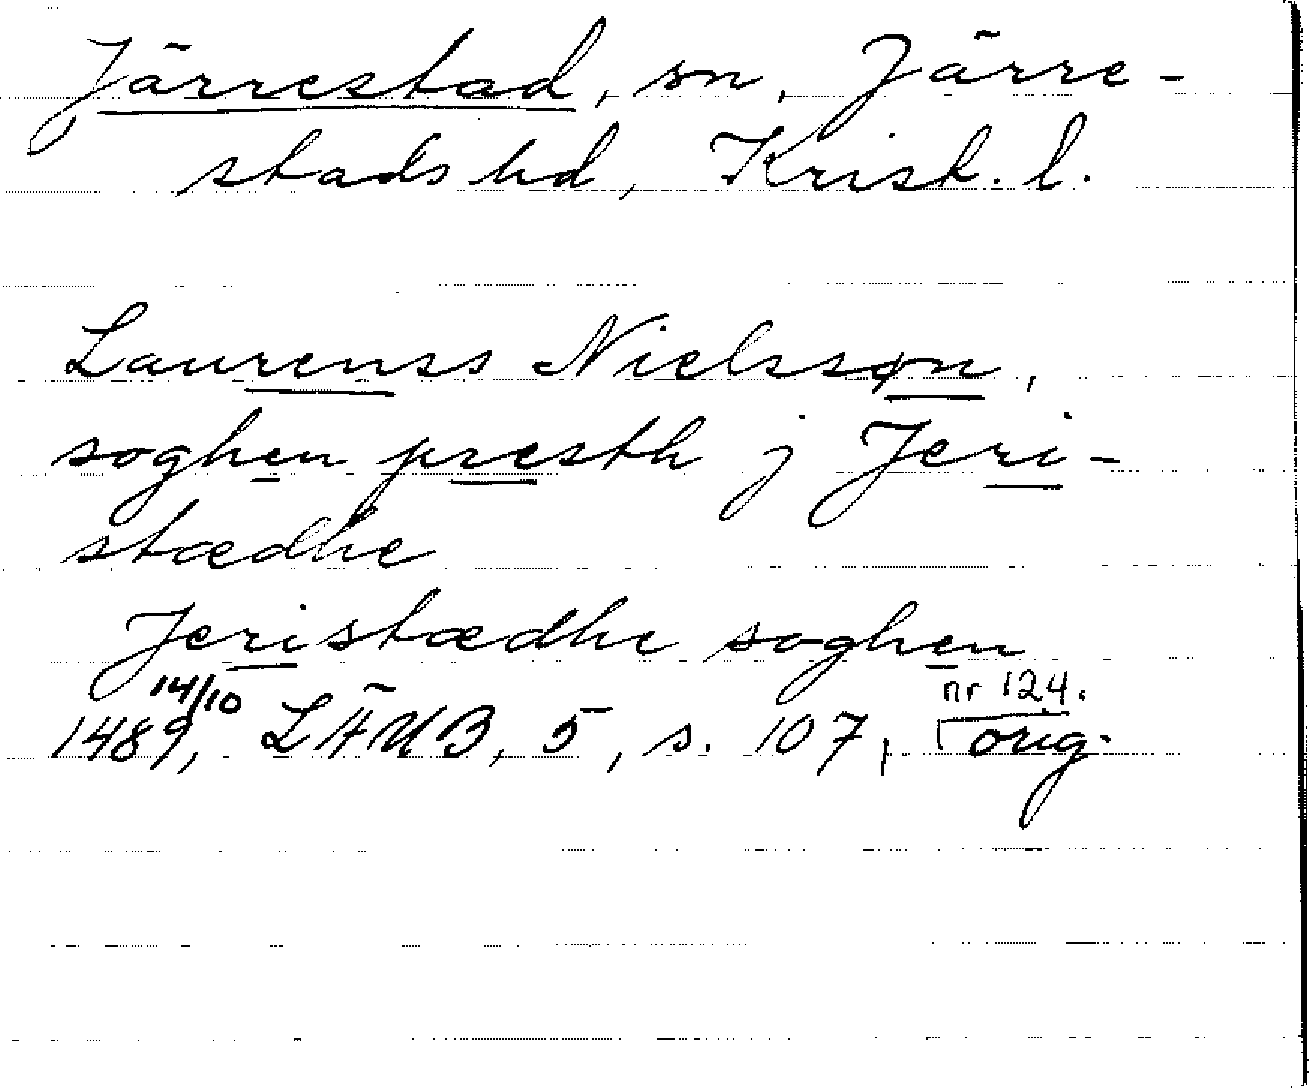 Järrestad, sn, Järre-
stads hd, Krist. l.
Laurenss Nielssøn,
soghen presth j Jeri-
stædhe
Jeristædhe soghen
14/10 nr 124.
1489, LÄUB, 5, s. 107, orig.